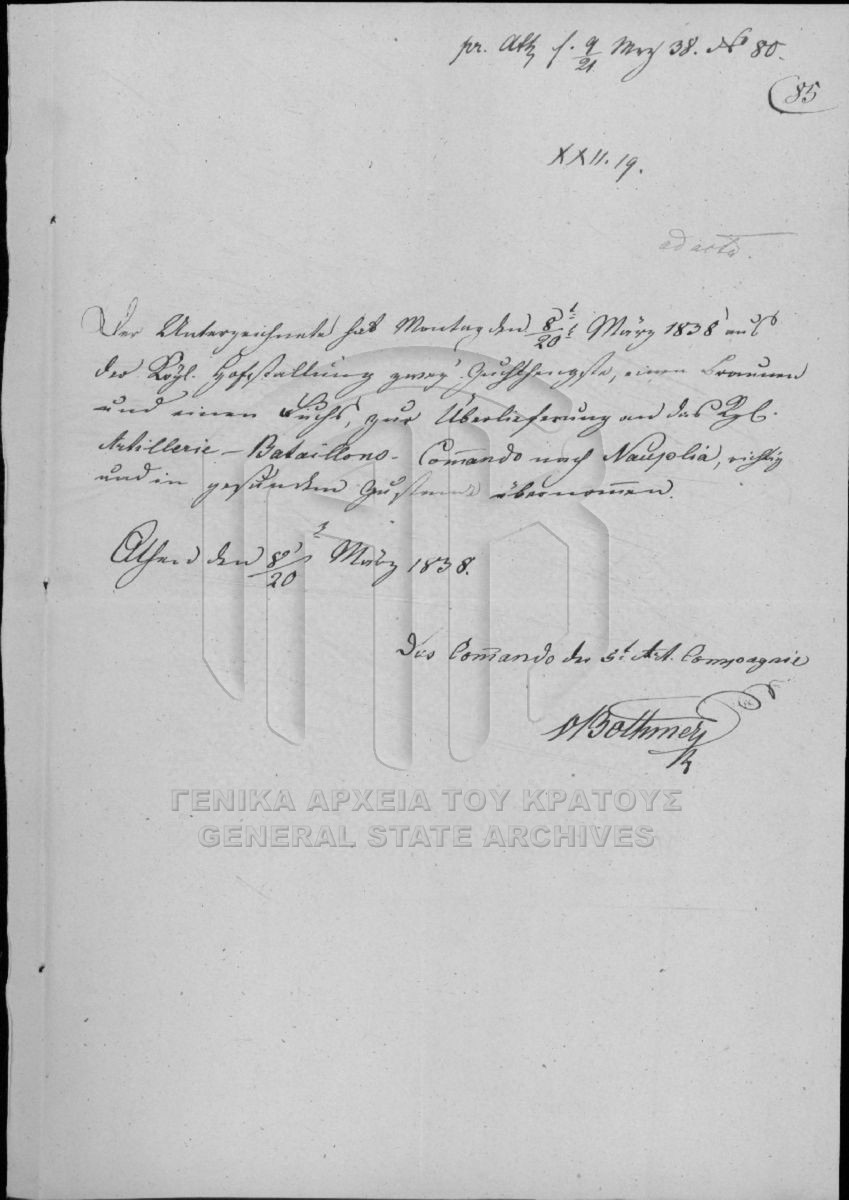 pr. Ath. f. 9/21 Mrz 38. No 80.
85
XXII. 19.
ad acta.
Der Unterzeichnete hat Montag den 8/20t März 1838 aus
der Kögl. Hofstallung zwey Zuchthengste, einen Braunen
und einen Fuchs, zur Überlieferung an das Kgl.
Artillerie-Bataillons-Commando nach Nauplia, richtig
und in gesundem Zustand übernommen.
Athen den 8/20 März 1838.
Das Commando der 5t Art. Compagnie
v Bothmer
ΓΕΝΙΚΑ ΑΡΧΕΙΑ ΤΟΥ ΚΡΑΤΟΥΣ
GENERAL STATE ARCHIVES